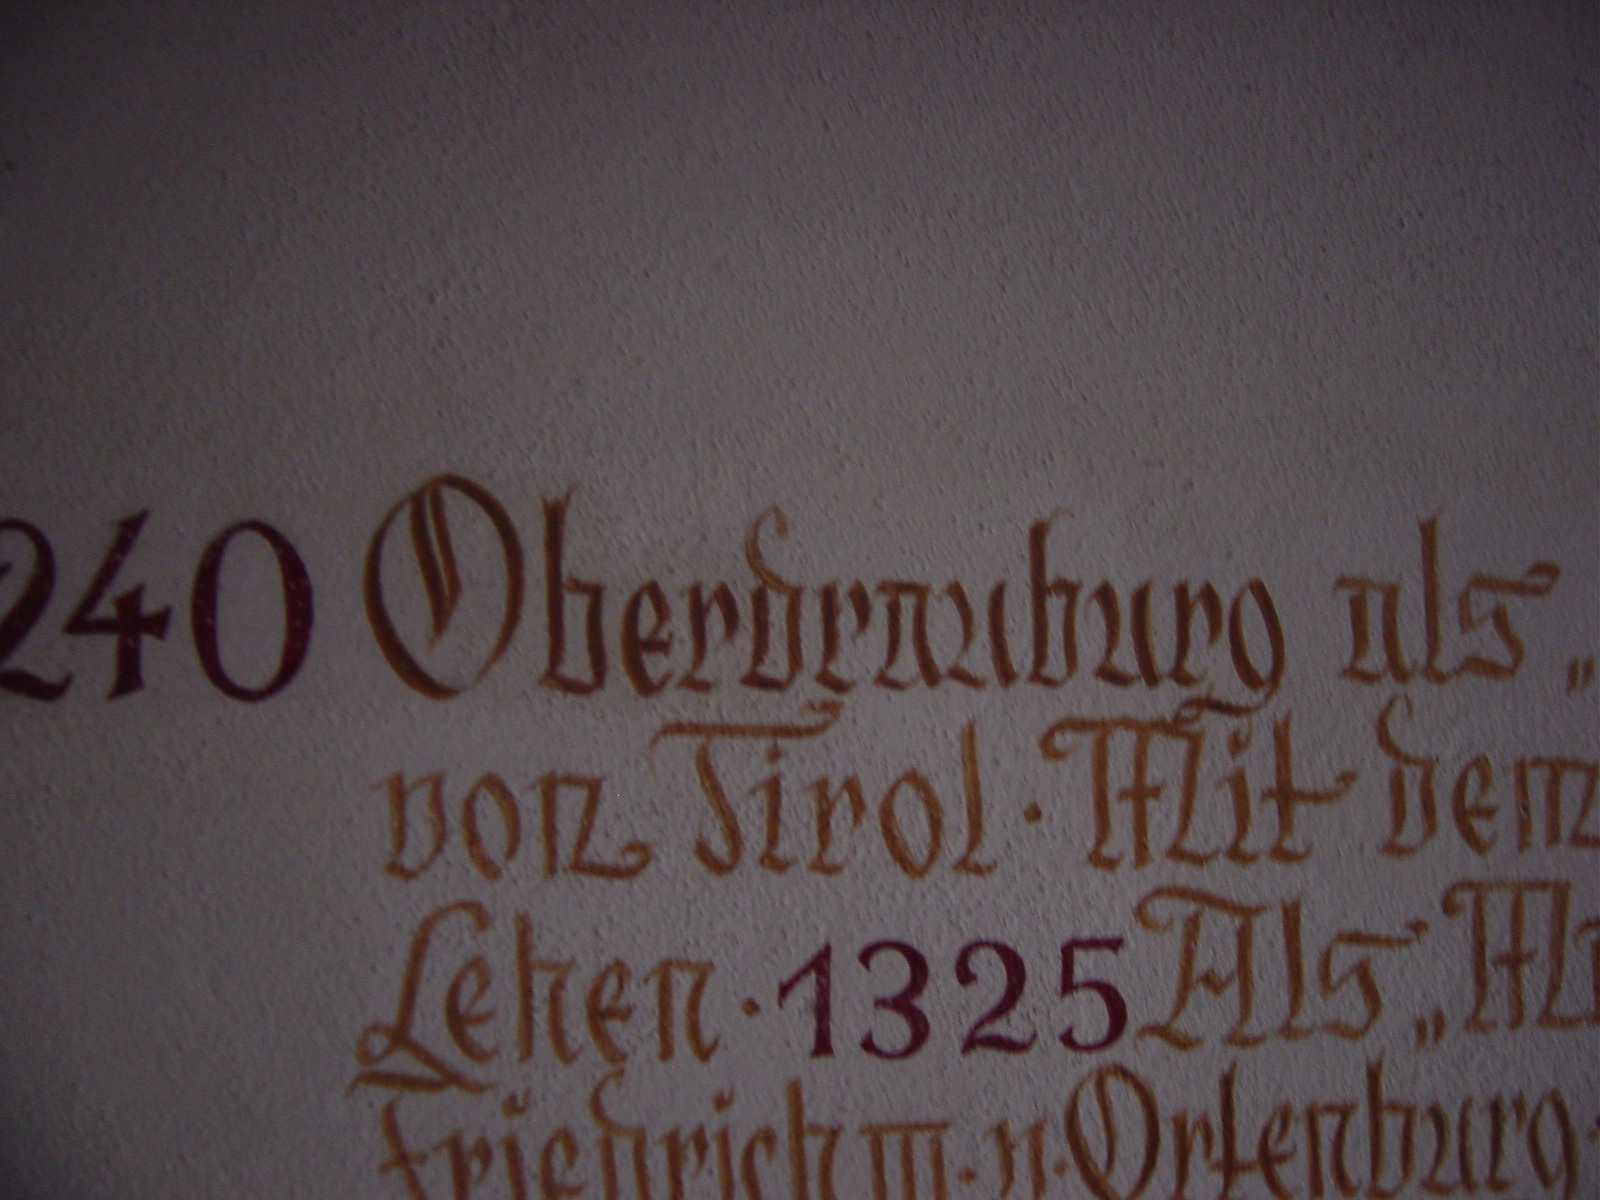 240 Oberdrauburg als „
von Tirol · Mit dem
Lehen · 1325 Als „M
Friedrich III. v. Ortenburg ·